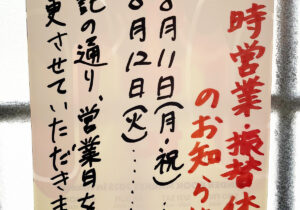 時営業・振替休
のお知らせ
8月11日(月・祝)……
8月12日(火)……
記の通り、営業日を
更させていただきま